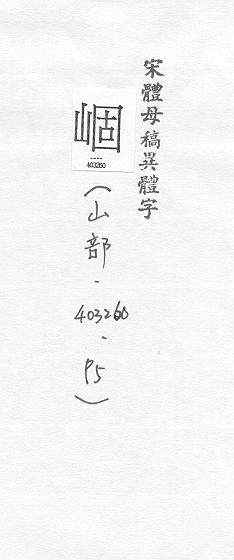 宋體母稿異體字
崓
403260
(山部-403260-P5)